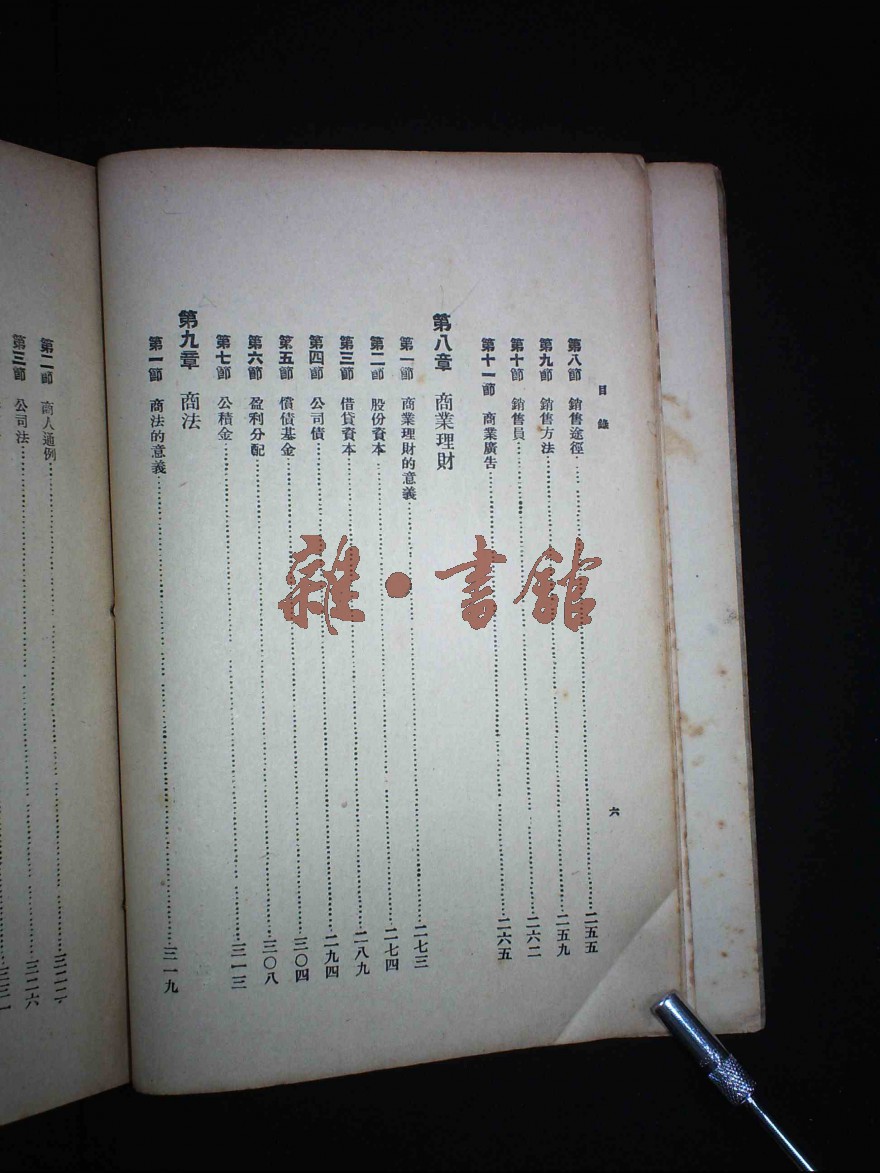 目錄
第八節 銷售途徑……二五五
第九節 銷售方法……二五九
第十節 銷售員……二六二
第十一節 商業廣告……二六五
第八章 商業理財
第一節 商業理財的意義……二七三
第二節 股份資本……二七四
第三節 借貸資本……二八九
第四節 公司債……二九四
第五節 償債基金……三〇四
第六節 盈利分配……三〇八
第七節 公積金……三一三
第九章 商法
第一節 商法的意義……三一九
六
第二節 商人通例
第三節 公司法……三二六
雜·書館